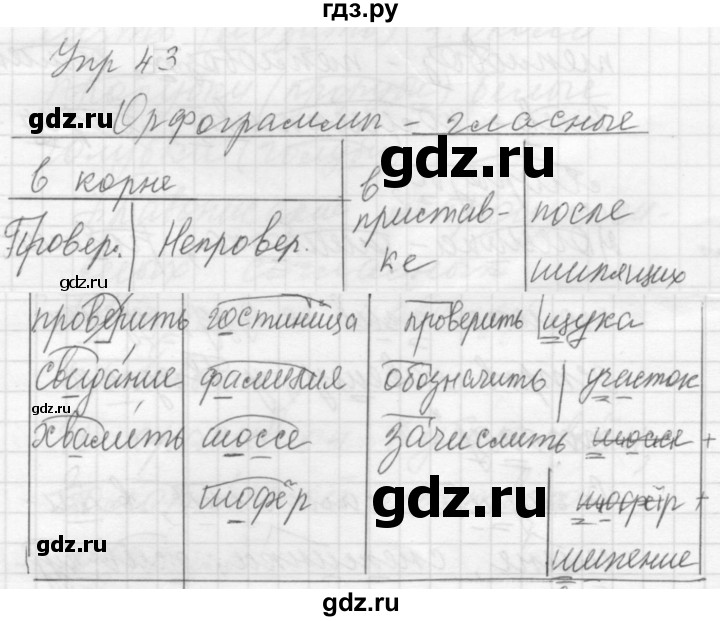 гдз.ру
Упр 43
gdz.ru Орфограммы - гласные
gdz.ru
в корне
в пристав-ке
после шипящих
Провер. Непровер.
gdz.ru
проверить гостиница проверить щука
свидание фамилия обозначить участок
gdz.ru
хвалить шоссе зачислить шоссе +
шофёр шофёр +
gdz.ru
gdz.ru
шипение
gdz.ru